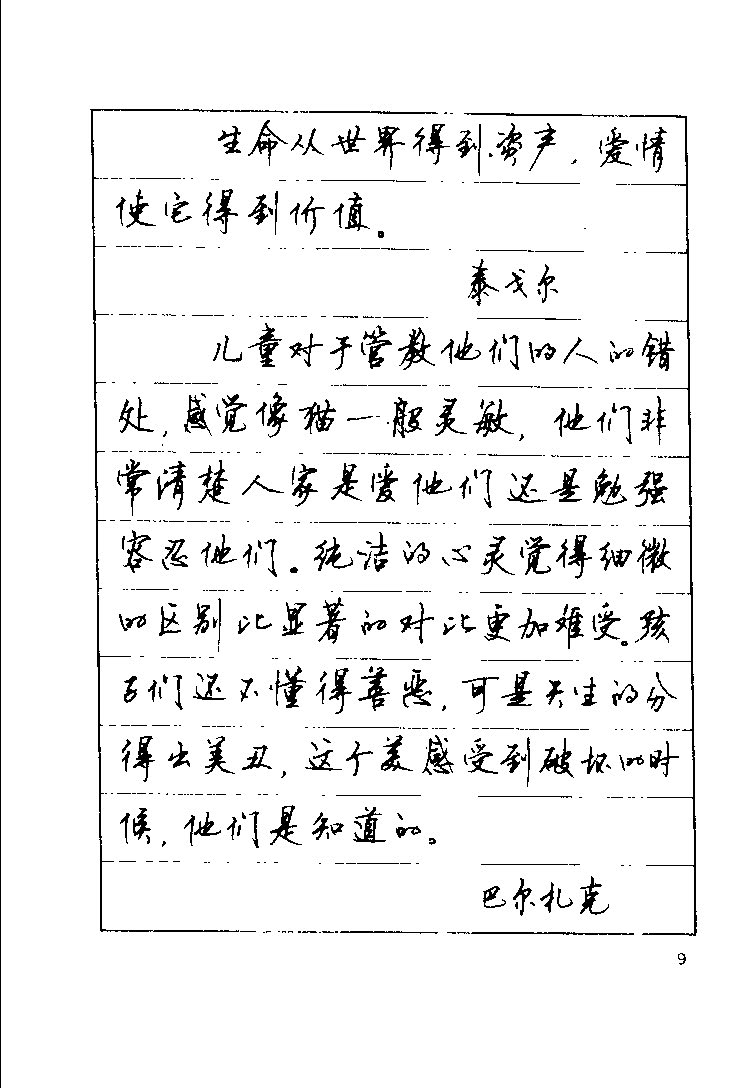 生命从世界得到资产，爱情
使它得到价值。
泰戈尔
儿童对于管教他们的人的错
处，感觉像猫一般灵敏，他们非
常清楚人家是爱他们还是勉强
容忍他们。纯洁的心灵觉得细微
的区别比显著的对比更加难受。孩
子们还不懂得善恶，可是天生的分
得出美丑，这个美感受到破坏的时
候，他们是知道的。
巴尔札克
9